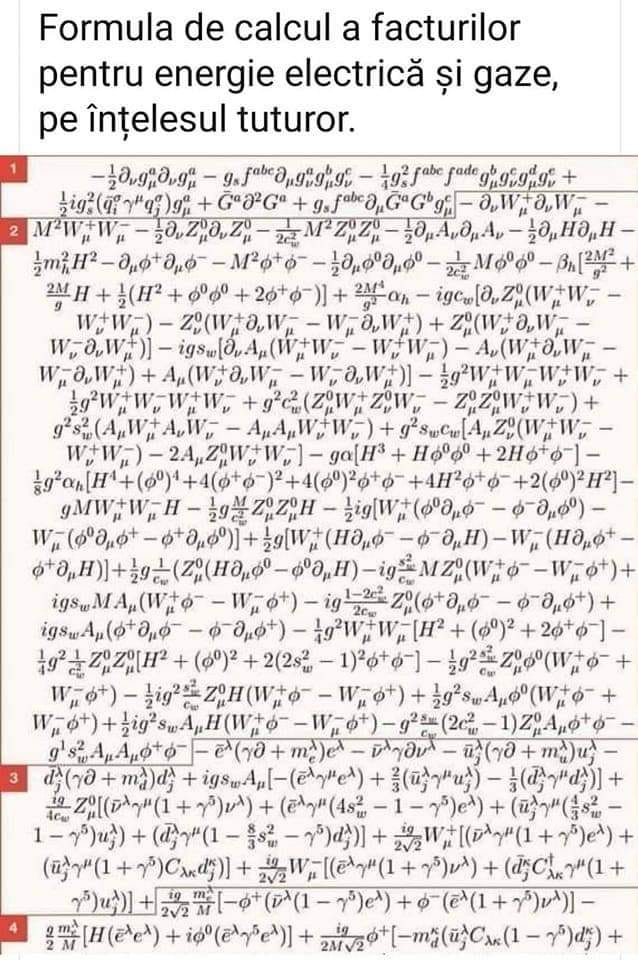 Formula de calcul a facturilor
pentru energie electrică și gaze,
pe înțelesul tuturor.
1
-½∂νg^a_μ∂νg^a_μ − g_s f^{abc}∂μg^a_νg^b_μg^c_ν − ¼g²_s f^{abc}f^{ade}g^b_μg^c_νg^d_μg^e_ν +
½ig²_s(q̄^σ_iγ^μq^σ_j)g^a_μ + Ḡ^a∂²G^a + g_s f^{abc}∂μḠ^aG^bg^c_μ − ∂νW⁺_μ∂νW⁻_μ −
2 M²W⁺_μW⁻_μ − ½∂νZ⁰_μ∂νZ⁰_μ − 1/(2c²_w) M²Z⁰_μZ⁰_μ − ½∂μAν∂μAν − ½∂μH∂μH −
½m²_hH² − ∂μϕ⁺∂μϕ⁻ − M²ϕ⁺ϕ⁻ − ½∂μϕ⁰∂μϕ⁰ − 1/(2c²_w) Mϕ⁰ϕ⁰ − β_h[2M²/g² +
2M/g H + ½(H² + ϕ⁰ϕ⁰ + 2ϕ⁺ϕ⁻)] + 2M⁴/g² α_h − igc_w[∂νZ⁰_μ(W⁺_μW⁻_ν −
W⁺_νW⁻_μ) − Z⁰_ν(W⁺_μ∂νW⁻_μ − W⁻_μ∂νW⁺_μ) + Z⁰_μ(W⁺_ν∂νW⁻_μ −
W⁻_ν∂νW⁺_μ)] − igs_w[∂νAμ(W⁺_μW⁻_ν − W⁺_νW⁻_μ) − Aν(W⁺_μ∂νW⁻_μ −
W⁻_μ∂νW⁺_μ) + Aμ(W⁺_ν∂νW⁻_μ − W⁻_ν∂νW⁺_μ)] − ½g²W⁺_μW⁻_μW⁺_νW⁻_ν +
½g²W⁺_μW⁻_νW⁺_μW⁻_ν + g²c²_w(Z⁰_μW⁺_μZ⁰_νW⁻_ν − Z⁰_μZ⁰_μW⁺_νW⁻_ν) +
g²s²_w(AμW⁺_μAνW⁻_ν − AμAμW⁺_νW⁻_ν) + g²s_wc_w[AμZ⁰_ν(W⁺_μW⁻_ν −
W⁺_νW⁻_μ) − 2AμZ⁰_μW⁺_νW⁻_ν] − gα[H³ + Hϕ⁰ϕ⁰ + 2Hϕ⁺ϕ⁻] −
⅛g²α_h[H⁴+(ϕ⁰)⁴+4(ϕ⁺ϕ⁻)²+4(ϕ⁰)²ϕ⁺ϕ⁻+4H²ϕ⁺ϕ⁻+2(ϕ⁰)²H²] −
gMW⁺_μW⁻_μH − ½g M/c²_w Z⁰_μZ⁰_μH − ½ig[W⁺_μ(ϕ⁰∂μϕ⁻ − ϕ⁻∂μϕ⁰) −
W⁻_μ(ϕ⁰∂μϕ⁺ − ϕ⁺∂μϕ⁰)] + ½g[W⁺_μ(H∂μϕ⁻ − ϕ⁻∂μH) − W⁻_μ(H∂μϕ⁺ −
ϕ⁺∂μH)] + ½g 1/c_w (Z⁰_μ(H∂μϕ⁰ − ϕ⁰∂μH) − ig s²_w/c_w MZ⁰_μ(W⁺_μϕ⁻ − W⁻_μϕ⁺) +
igs_wMAμ(W⁺_μϕ⁻ − W⁻_μϕ⁺) − ig (1−2c²_w)/(2c_w) Z⁰_μ(ϕ⁺∂μϕ⁻ − ϕ⁻∂μϕ⁺) +
igs_wAμ(ϕ⁺∂μϕ⁻ − ϕ⁻∂μϕ⁺) − ¼g²W⁺_μW⁻_μ[H² + (ϕ⁰)² + 2ϕ⁺ϕ⁻] −
¼g² 1/c²_w Z⁰_μZ⁰_μ[H² + (ϕ⁰)² + 2(2s²_w − 1)²ϕ⁺ϕ⁻] − ½g² s²_w/c_w Z⁰_μϕ⁰(W⁺_μϕ⁻ +
W⁻_μϕ⁺) − ½ig² s²_w/c_w Z⁰_μH(W⁺_μϕ⁻ − W⁻_μϕ⁺) + ½g²s_wAμϕ⁰(W⁺_μϕ⁻ +
W⁻_μϕ⁺) + ½ig²s_wAμH(W⁺_μϕ⁻ − W⁻_μϕ⁺) − g² s_w/c_w (2c²_w − 1)Z⁰_μAμϕ⁺ϕ⁻ −
g¹s²_wAμAμϕ⁺ϕ⁻ − ē^λ(γ∂ + m^λ_e)e^λ − ν̄^λγ∂ν^λ − ū^λ_j(γ∂ + m^λ_u)u^λ_j −
3 d̄^λ_j(γ∂ + m^λ_d)d^λ_j + igs_wAμ[−(ē^λγ^μe^λ) + ⅔(ū^λ_jγ^μu^λ_j) − ⅓(d̄^λ_jγ^μd^λ_j)] +
ig/(4c_w) Z⁰_μ[(ν̄^λγ^μ(1 + γ⁵)ν^λ) + (ē^λγ^μ(4s²_w − 1 − γ⁵)e^λ) + (ū^λ_jγ^μ(4/3 s²_w −
1 − γ⁵)u^λ_j) + (d̄^λ_jγ^μ(1 − 8/3 s²_w − γ⁵)d^λ_j)] + ig/(2√2) W⁺_μ[(ν̄^λγ^μ(1 + γ⁵)e^λ) +
(ū^λ_jγ^μ(1 + γ⁵)C_{λκ}d^κ_j)] + ig/(2√2) W⁻_μ[(ē^λγ^μ(1 + γ⁵)ν^λ) + (d̄^κ_jC†_{λκ}γ^μ(1 +
γ⁵)u^λ_j)] + ig/(2√2) m^λ_e/M [−ϕ⁺(ν̄^λ(1 − γ⁵)e^λ) + ϕ⁻(ē^λ(1 + γ⁵)ν^λ)] −
4 g/2 m^λ_e/M [H(ē^λe^λ) + iϕ⁰(ē^λγ⁵e^λ)] + ig/(2M√2) ϕ⁺[−m^κ_d(ū^λ_jC_{λκ}(1 − γ⁵)d^κ_j) +